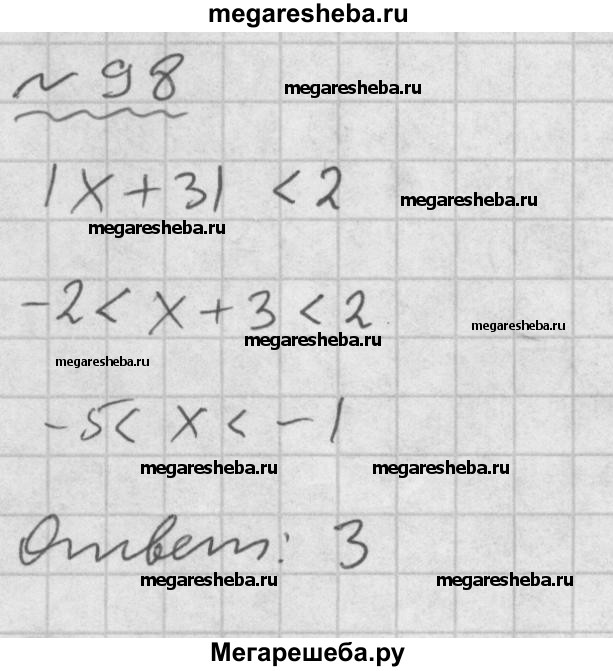 megaresheba.ru
~ 98
megaresheba.ru
|x+3| < 2
megaresheba.ru
megaresheba.ru
-2 < x + 3 < 2
megaresheba.ru
megaresheba.ru
megaresheba.ru
-5 < x < -1
megaresheba.ru
megaresheba.ru
Ответ: 3
megaresheba.ru
megaresheba.ru
Мегарешеба.ру